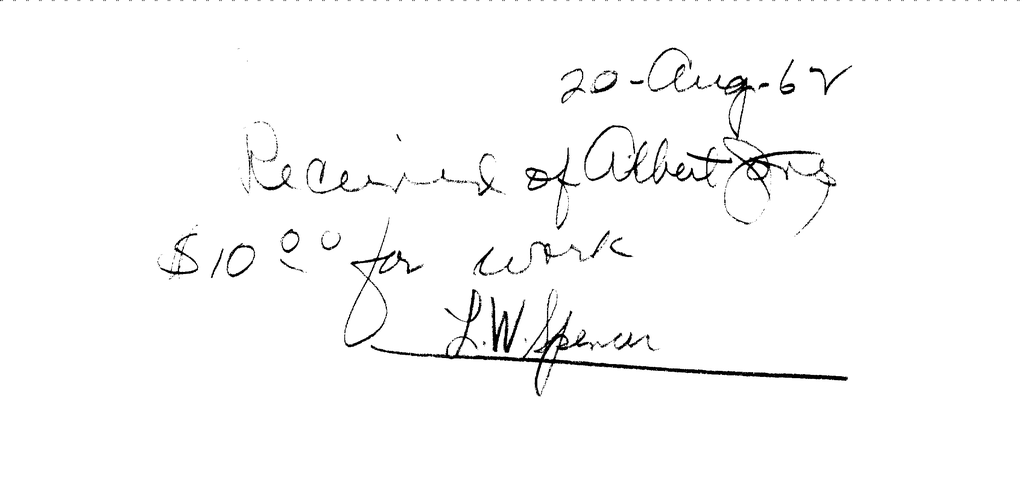 20-Aug-62
Received of Albert Jones
$10.00 for work
L.W. Spencer